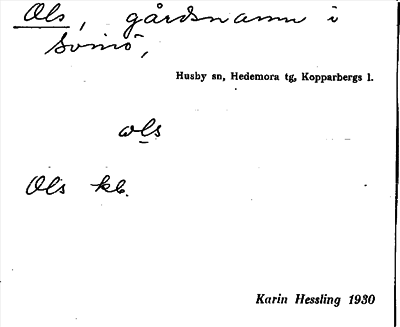 Ols, gårdsnamn i
Svinö,
Husby sn, Hedemora tg, Kopparbergs l.
ols
Ols kb.
Karin Hessling 1930